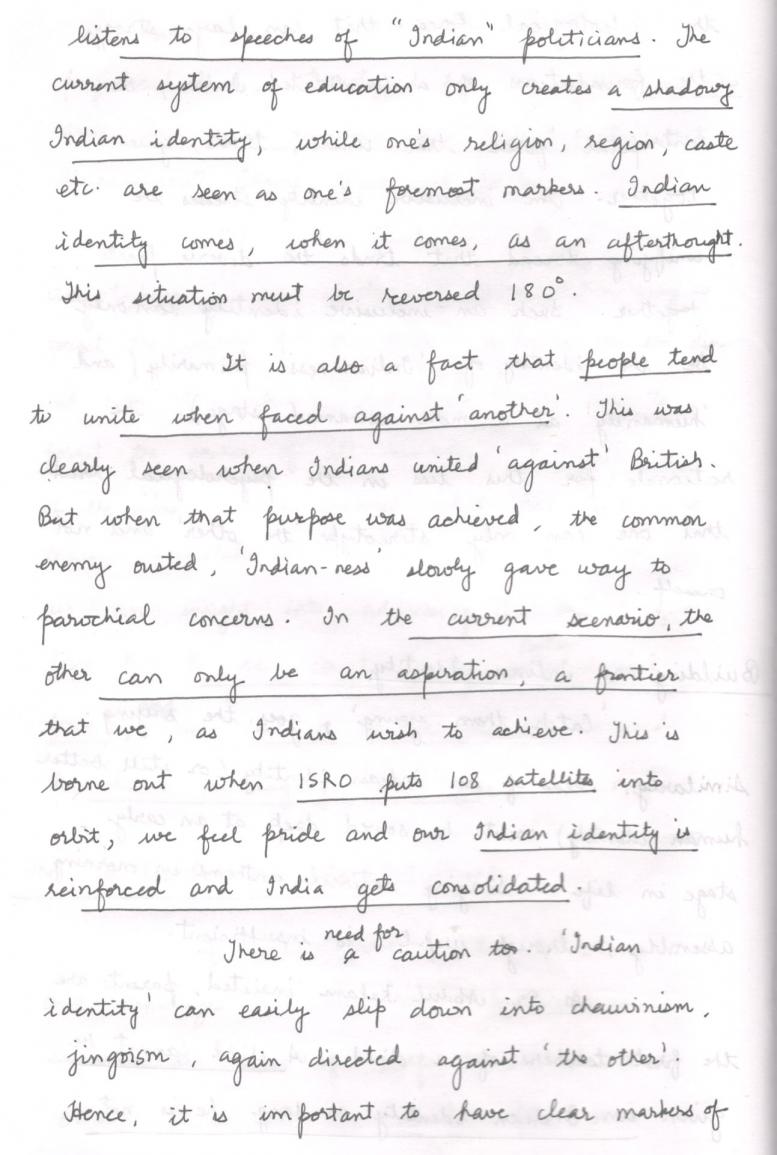 listens to speeches of "Indian" politicians. The
current system of education only creates a shadowy
Indian identity, while one's religion, region, caste
etc. are seen as one's foremost markers. Indian
identity comes, when it comes, as an afterthought.
This situation must be reversed 180°.
It is also a fact that people tend
to unite when faced against 'another'. This was
clearly seen when Indians united 'against' British.
But when that purpose was achieved, the common
enemy ousted, 'Indian-ness' slowly gave way to
parochial concerns. In the current scenario, the
other can only be an aspiration, a frontier
that we, as Indians wish to achieve. This is
borne out when ISRO puts 108 satellites into
orbit, we feel pride and our Indian identity is
reinforced and India gets consolidated.
There is a need for caution to. 'Indian
identity' can easily slip down into chauvinism,
jingoism, again directed against 'the other'.
Hence, it is important to have clear markers of